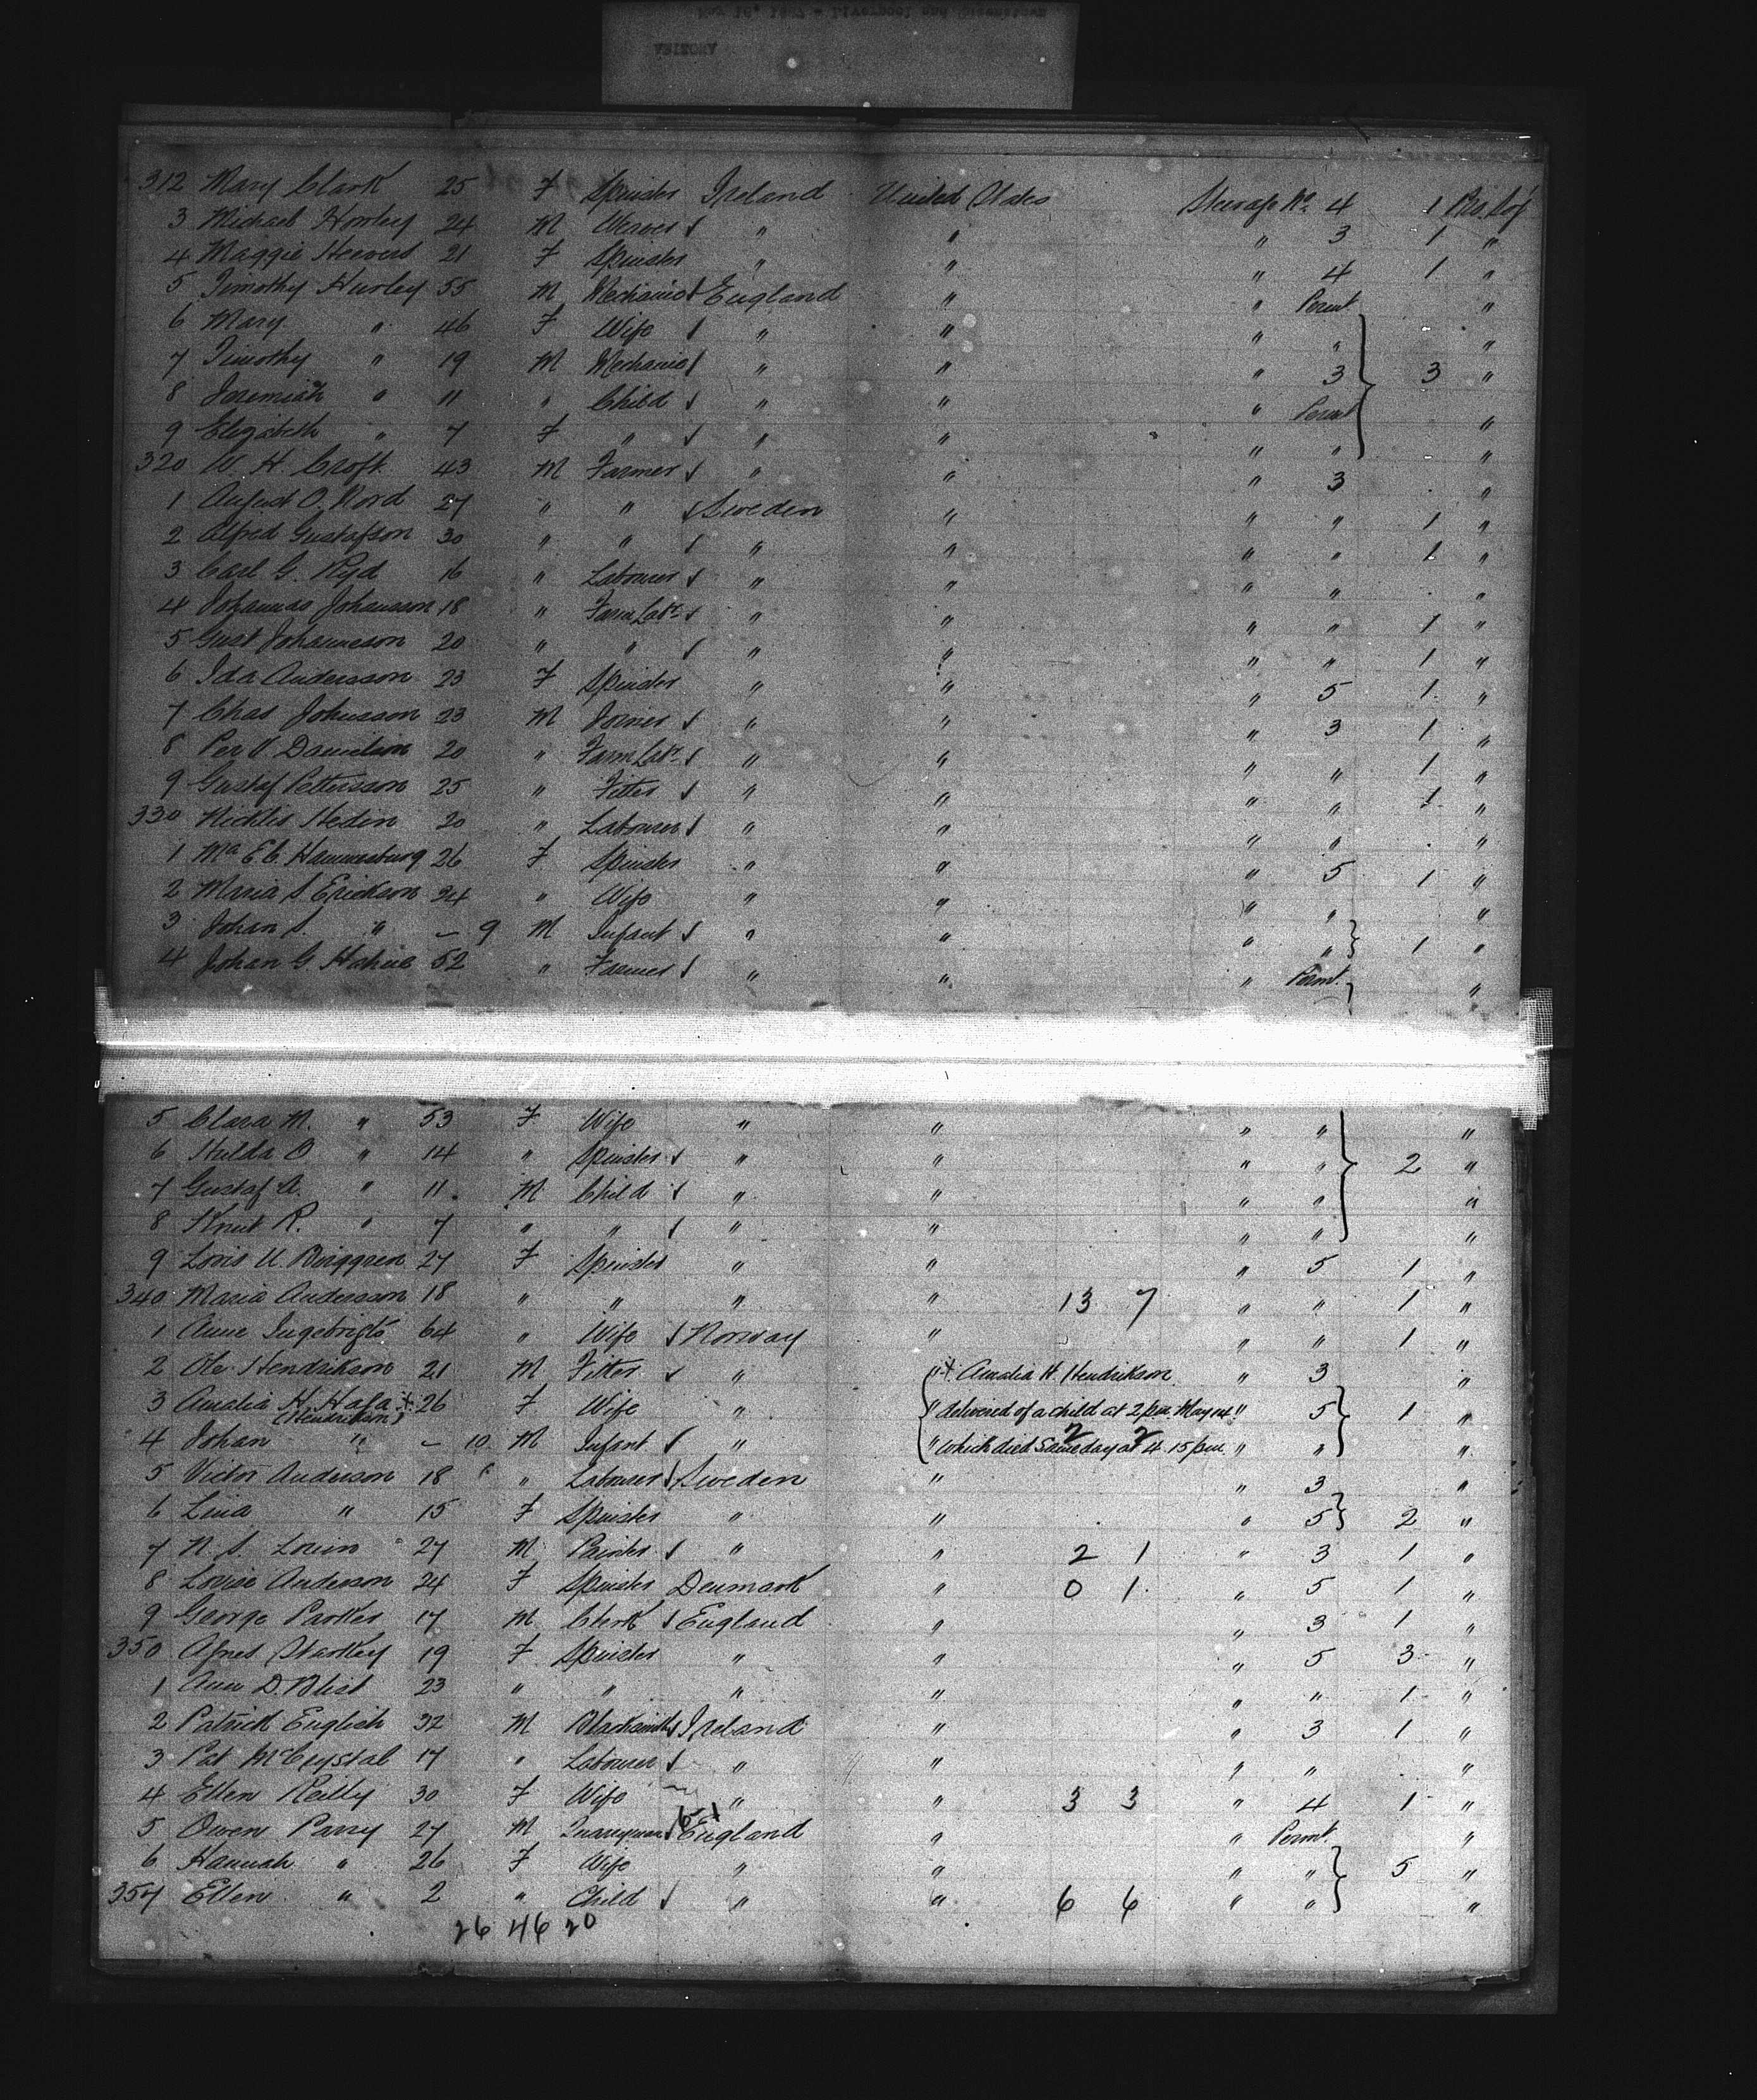 312 Mary Clark 25 F Spinster Ireland United States Steerage No. 4 1 Pro. Soj
3 Michael Howley 24 M Weaver " " " 3 1 "
4 Maggie Heevers 21 F Spinster " " " 4 1 "
5 Timothy Hurley 55 M Mechanic England " " Permt "
6 Mary " 46 F Wife " " " " "
7 Timothy " 19 M Mechanic " " " 3 3 "
8 Jeremiah " 11 " Child " " " Permt "
9 Elizabeth " 7 F " " " " " "
320 W. H. Croft 43 M Farmer " " " 3 "
1 August O. Nord 27 " " Sweden " " " 1 "
2 Alfred Gustafson 30 " " " " " " 1 "
3 Carl G. Ryd 16 " Labourer " " " " "
4 Johannas Johansson 18 " Farm Labr " " " " 1 "
5 Gust Johanneson 20 " " " " " " 1 "
6 Ida Andersson 23 F Spinster " " " 5 1 "
7 Chas Johnsson 23 M Joiner " " " 3 1 "
8 Per V. Danielson 20 " Farm Labr " " " " 1 "
9 Gustaf Pettersson 25 " Fitter " " " " 1 "
330 Nicklis Hedin 20 " Labourer " " " " "
1 Ma E C. Hammarburg 26 F Spinster " " " 5 1 "
2 Maria S Erickson 24 " Wife " " " " "
3 Johan S. " – 9 M Infant " " " " 1 "
4 Johan G. 52 " Farmer " " " Permt. "
5 Clara M. " 53 F Wife " " " " "
6 Hulda O " 14 " Spinster " " " " 2 "
7 Gustaf A. " 11 M Child " " " " "
8 Knut R. " 7 " " " " " " "
9 Loris U. Berggren 27 F Spinster " " " 5 1 "
340 Maria Andersson 18 " " " " 13 7 " " 1 "
1 Anne Ingebrigts 64 " Wife Norway " " " 1 "
2 Ole Hendrikson 21 M Fitter " " + Amalia H. Hendrikson " 3 "
3 Amalia H. Hafa + 26 F Wife " " delivered of a child at 2 p.m. May 14 " 5 1 "
(Hendrikson)
4 Johan " – 10 M Infant " " which died same day at 4.15 p.m. 2 2 " " "
5 Victor Anderson 18 " Labourer Sweden " " 3 "
6 Lina " 15 F Spinster " " " 5 2 "
7 N. S. 27 M Painter " " 2 1 " 3 1 "
8 Louise Anderson 24 F Spinster Denmark " 0 1 " 5 1 "
9 George Parker 17 M Clerk England " " 3 1 "
350 Agnes Starkey 19 F Spinster " " " 5 3 "
1 Ann D. Blist 23 " " " " " " 1 "
2 Patrick English 32 M Blacksmith Ireland " " 3 1 "
3 Pat McCrystal 17 " Labourer " " " " "
4 Ellen Reilly 30 F Wife " " 3 3 " 4 1 "
5 Owen Parry 27 M Quarryman England " " Permt. "
6 Hannah " 26 F Wife " " " " 5 "
357 Ellen " 2 " Child " " 6 6 " " "
26 46 20